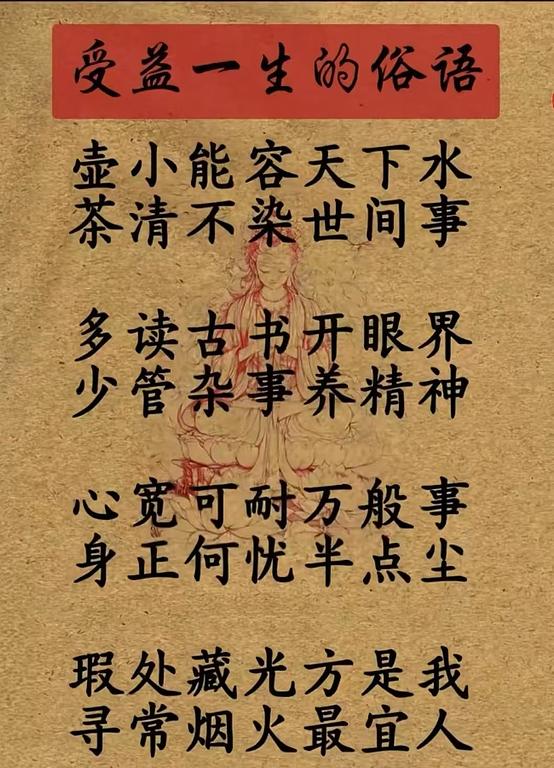 受益一生的俗语
壶小能容天下水
茶清不染世间事
多读古书开眼界
少管杂事养精神
心宽可耐万般事
身正何忧半点尘
瑕处藏光方是我
寻常烟火最宜人